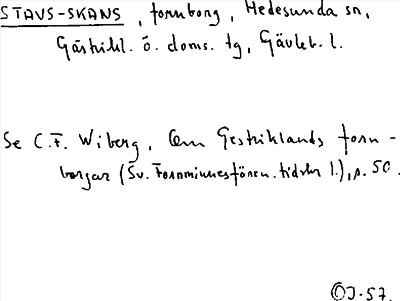 STAVS-SKANS, fornborg, Hedesunda sn,
Gästrikl. ö. doms. tg, Gävleb. l.
Se C.F. Wiberg, Om Gestriklands forn-
borgar (Sv. Fornminnesfören. tidskr 1.), s. 50.
OJ-57.